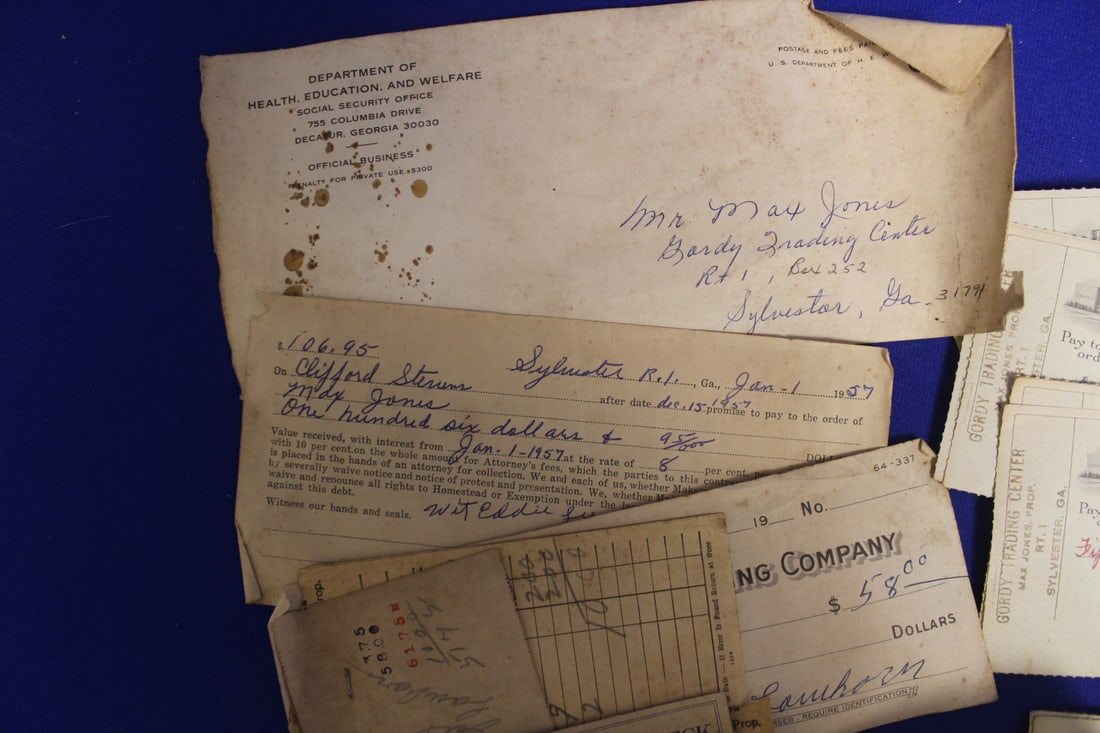 DEPARTMENT OF
HEALTH, EDUCATION, AND WELFARE
SOCIAL SECURITY OFFICE
755 COLUMBIA DRIVE
DECATUR, GEORGIA 30030
OFFICIAL BUSINESS
PENALTY FOR PRIVATE USE $300
POSTAGE AND FEES PAID
U. S. DEPARTMENT OF H. E. W.
Mr Max Jones
Gordy Trading Center
Rt 1, Box 252
Sylvester, Ga. 31791
$ 106.95
Sylvester R.1., Ga., Jan-1 1957
On Clifford Stevens after date dec. 15 1957 promise to pay to the order of
Max Jones
One hundred six dollars & 95/100 DOL
Value received, with interest from Jan-1-1957 at the rate of 8 per cent.
with 10 per cent. on the whole amount for Attorney's fees, which the parties to this
is placed in the hands of an attorney for collection. We and each of us, whether
by severally waive notice and notice of protest and prsentation. We, whether
waive and renounce all rights to Homestead or Exemption under the
against this debt.
Witness our hands and seals. Wit Eddie
64-337
19 No.
NG COMPANY
$ 58 00
DOLLARS
Lawhorn
REQUIRE IDENTIFICATION
rop.
375
5800
6175
200
200
If Error Is Found Return at Once
Prop.
ECK
GORDY TRADING
MAX JONES, PRO
RT. 1
STER, GA.
Pay to
ord
GORDY TRADING CENTER
MAX JONES, PROP.
RT. 1
SYLVESTER, GA.
Pay